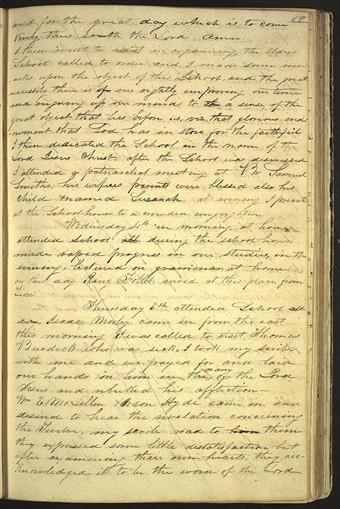 19
and for the great day which is to come
Verily thus saith the Lord Amen.
I then went to assist in organizing the Elders
School called to order and I made some rem
arks upon the object of this School, and the great
necessity there is of our rightly improving our time
and reigning up our minds to a sense of the
great object that lies before us, viz, that glorious end
owment that God has in store for the faithful
I then dedicated the School in the name of the
Lord Jesus Christ. after the School was dismissed
I attended a patriarchal meeting at Br Samuel
Smiths, his wifeses parents were blessed also his
child named Susanah, at evening I preach
at the School house to a crowded congregation
Wednesday 4th in morning, at home
attended school during the school hours
made rapid progress in our studies, in the
evening, lectured on grammar at home
on this day King Follet arived at this place from
Zion.
Thursday 5th attended School
Isaac Morley came in from the east
this morning I was called to visit Thomas
Burdick who was sick, I took my scribe
with me and we prayed for and laid
our hands on him in the name of the Lord
Jesus and rebuked his affliction—
Wm E. McLellen & Orson Hyde came in and
desired to hear the revelation concerning
the Twelve, my scribe read to them
they expressed some little dissatisfaction but
after examining their own hearts, they ac-
knowledged it to be the word of the Lord